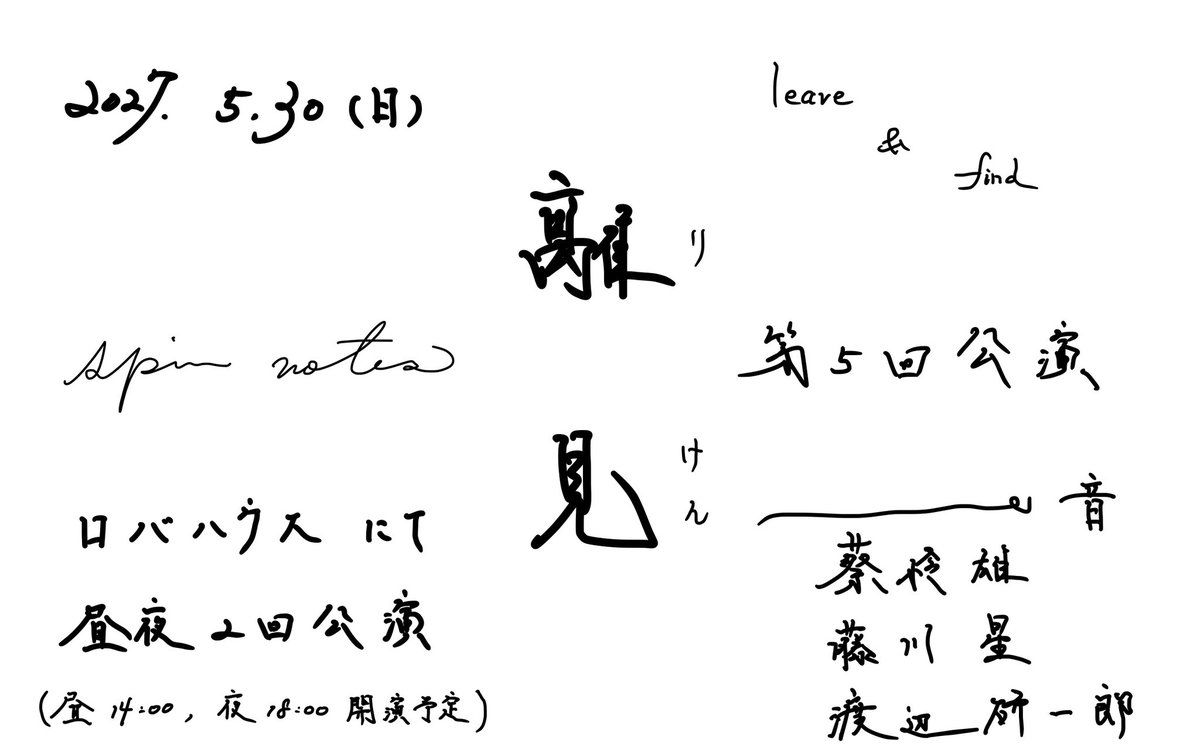 2027. 5.30 (日)
leave
&
find
離
り
spin notes
第5回公演
見
けん
音
ロバハウス にて
蔡怜雄
昼夜2回公演
藤川星
(昼 14:00, 夜 18:00 開演予定)
渡辺研一郎